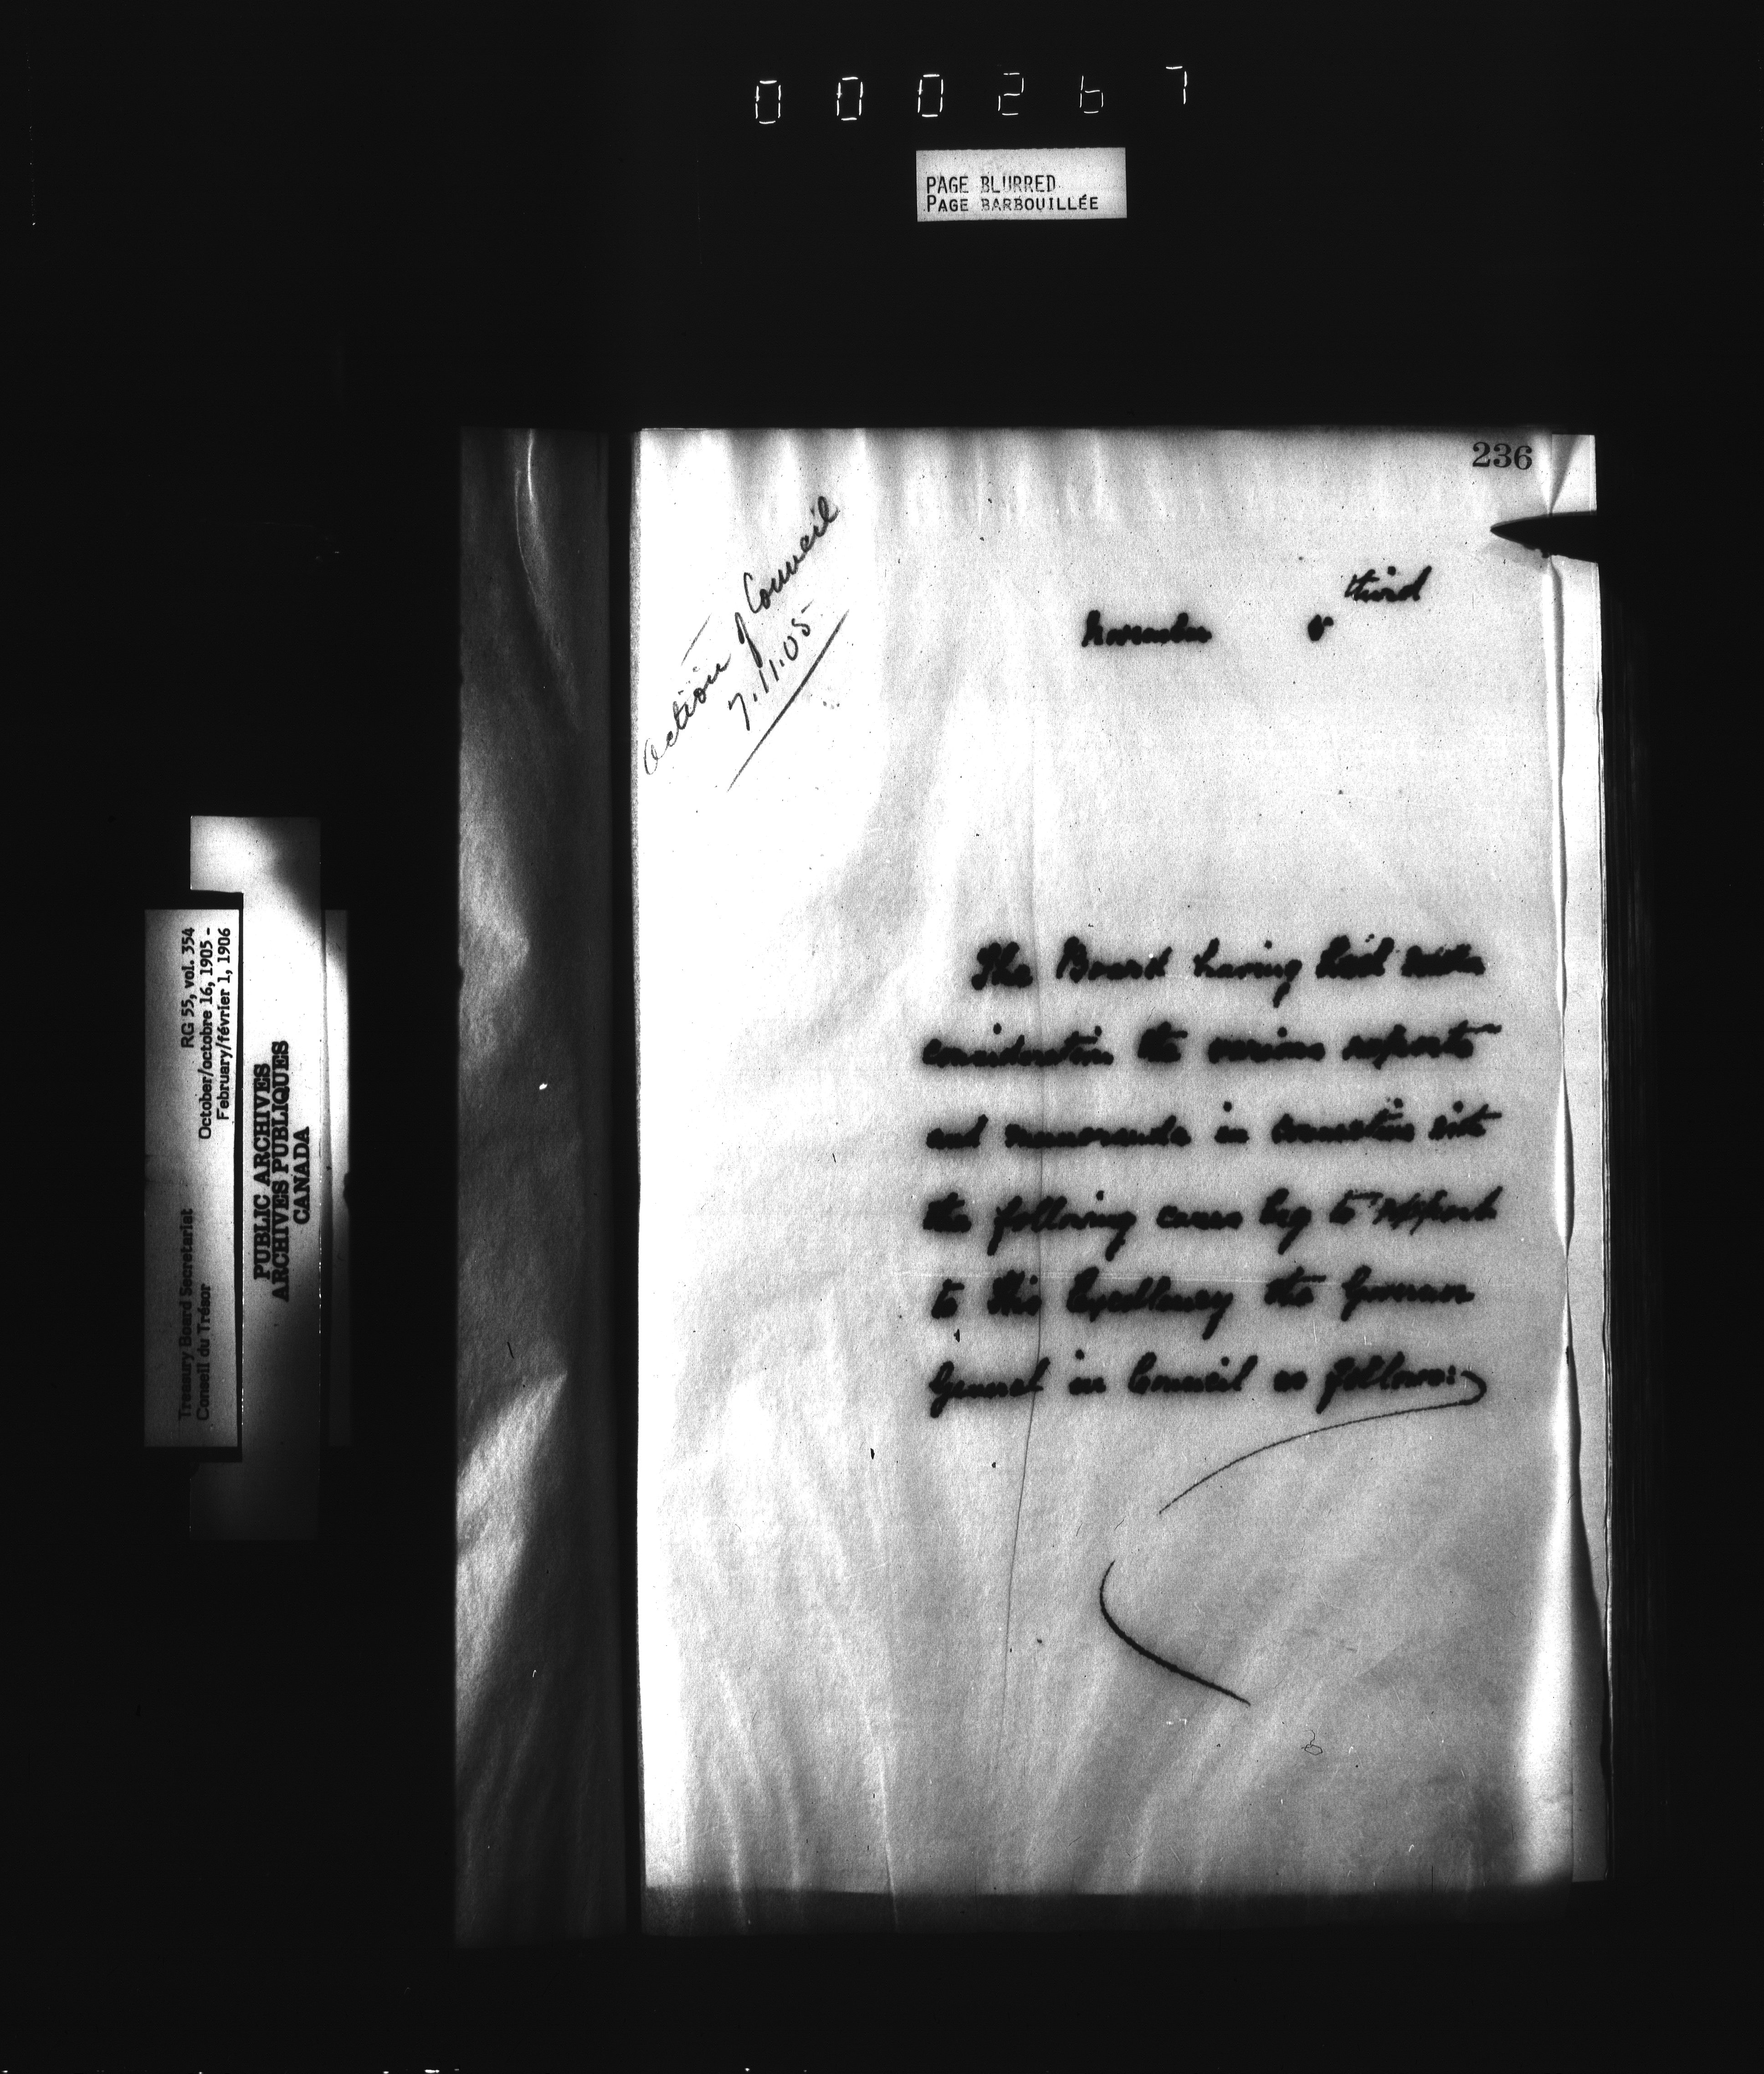 000267
PAGE BLURRED
PAGE BARBOUILLÉE
236
Action of Council
7.11.05
third
November 5
The Board having had under
consideration the various reports
and memoranda in connection with
the following cases beg to report
to His Excellency the Governor
General in Council as follows:
RG 55, vol. 354
October/octobre 16, 1905 -
February/février 1, 1906
Treasury Board Secretariat
Conseil du Trésor
PUBLIC ARCHIVES
ARCHIVES PUBLIQUES
CANADA